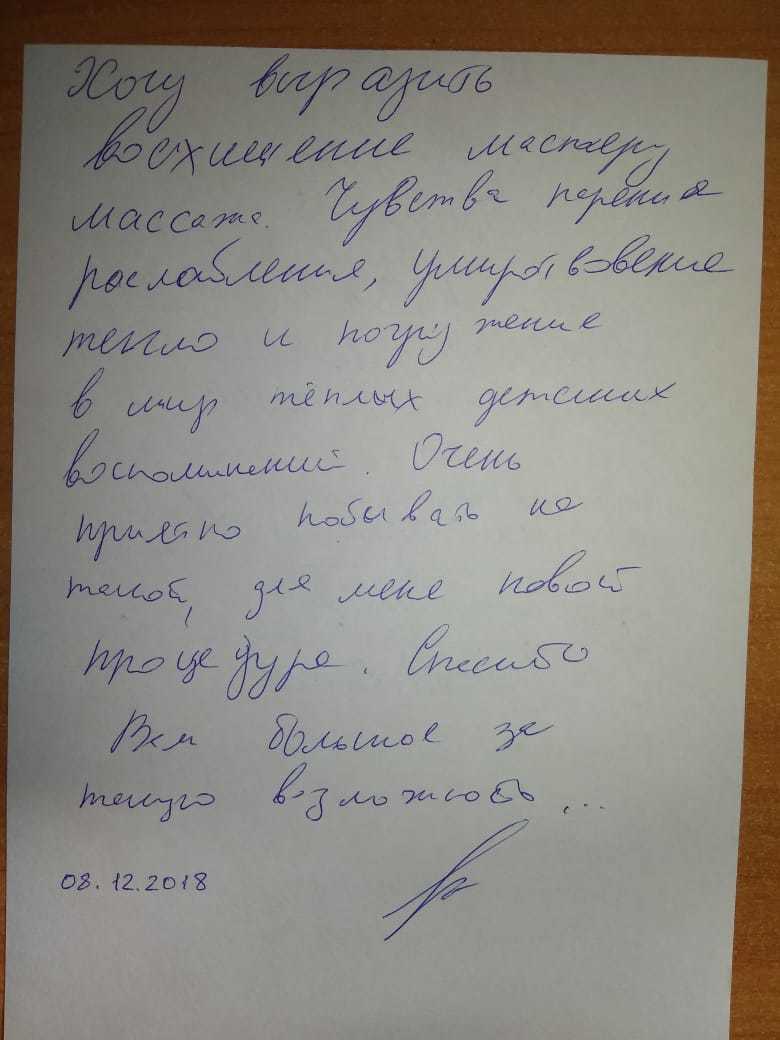 Хочу выразить
восхищение мастеру
массажа. Чувства парения
рослабления, умиротвовение
тепло и погружение
в мир тёплых детских
воспоминаний. Очень
приятно побывать на
такой, для меня новой
процедуре. Спасибо
Вам большое за
такую возможность...
08.12.2018